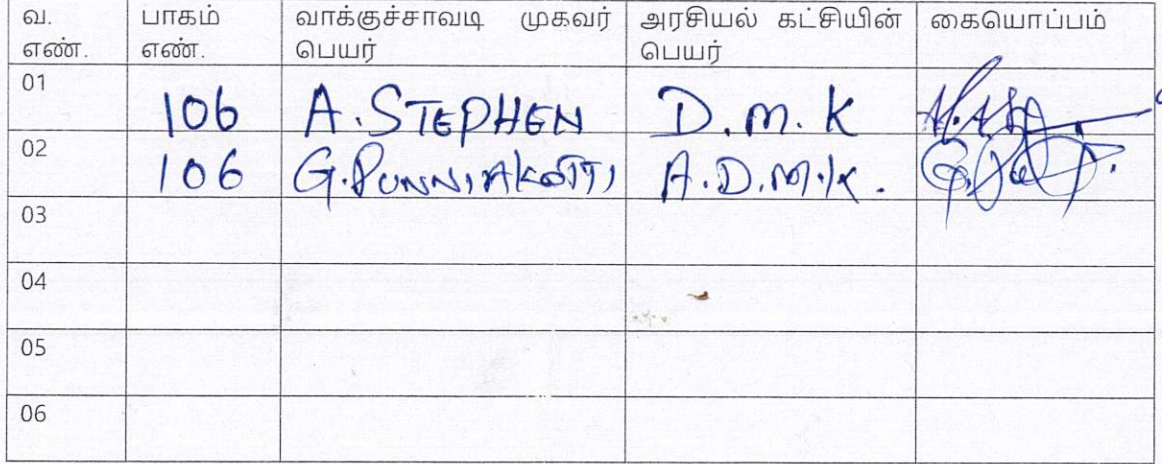 வ. எண். பாகம் எண். வாக்குச்சாவடி முகவர் பெயர் அரசியல் கட்சியின் பெயர் கையொப்பம்
01 106 A. STEPHEN D.M.K
02 106 G. PUNNIAKOTTI A.D.M.K.
03
04
05
06